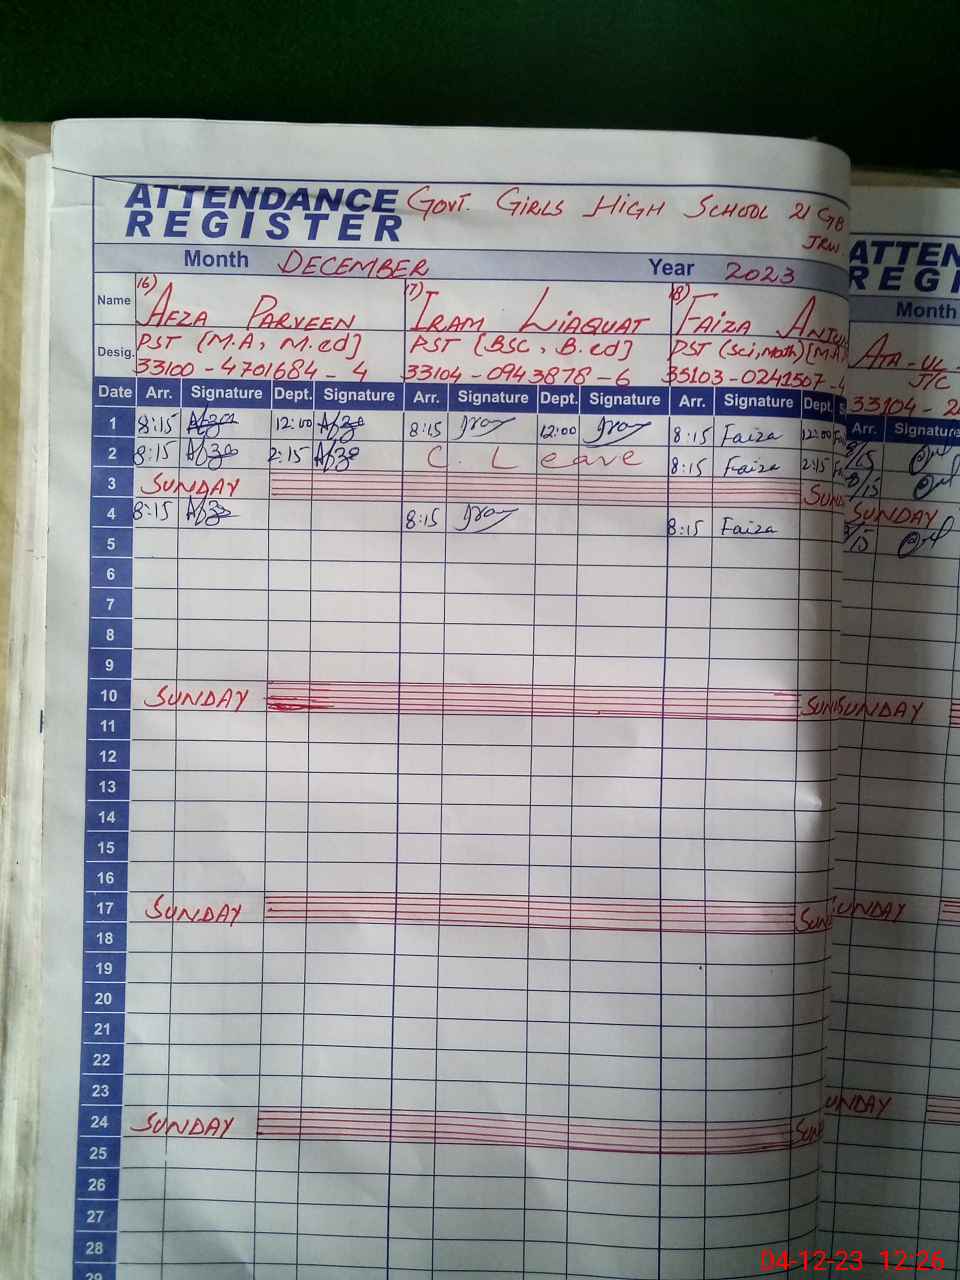 ATTENDANCE GOVT. GIRLS HIGH SCHOOL 21 GB
REGISTER JRW.
Month DECEMBER Year 2023
Name 16) AFZA PARVEEN 17) IRAM LIAQUAT 18) FAIZA
Desig. PST [M.A, M.ed] PST [BSC, B.ed] PST (Sci, Math) [M.A
33100 - 4701684 - 4 33104 - 0943878 - 6 33103 - 0241507 - 4
Date Arr. Signature Dept. Signature Arr. Signature Dept. Signature Arr. Signature Dept. S
1 8:15 Afza 12:00 Afza 8:15 12:00 8:15 Faiza 12:00 Fa
2 8:15 Afza 2:15 Afza C. Leave 8:15 Faiza 2:15 Fa
3 SUNDAY SUN
4 8:15 Afza 8:15 8:15 Faiza
5
6
7
8
9
10 SUNDAY SUN
11
12
13
14
15
16
17 SUNDAY SUN
18
19
20
21
22
23
24 SUNDAY SUN
25
26
27
28
29
ATTEN
REGI
Month
ATA - UL
J/C
33104 - 2
Arr. Signature
8/15
8/15
SUNDAY
8/15
SUNDAY
SUNDAY
UNDAY
04-12-23 12:26